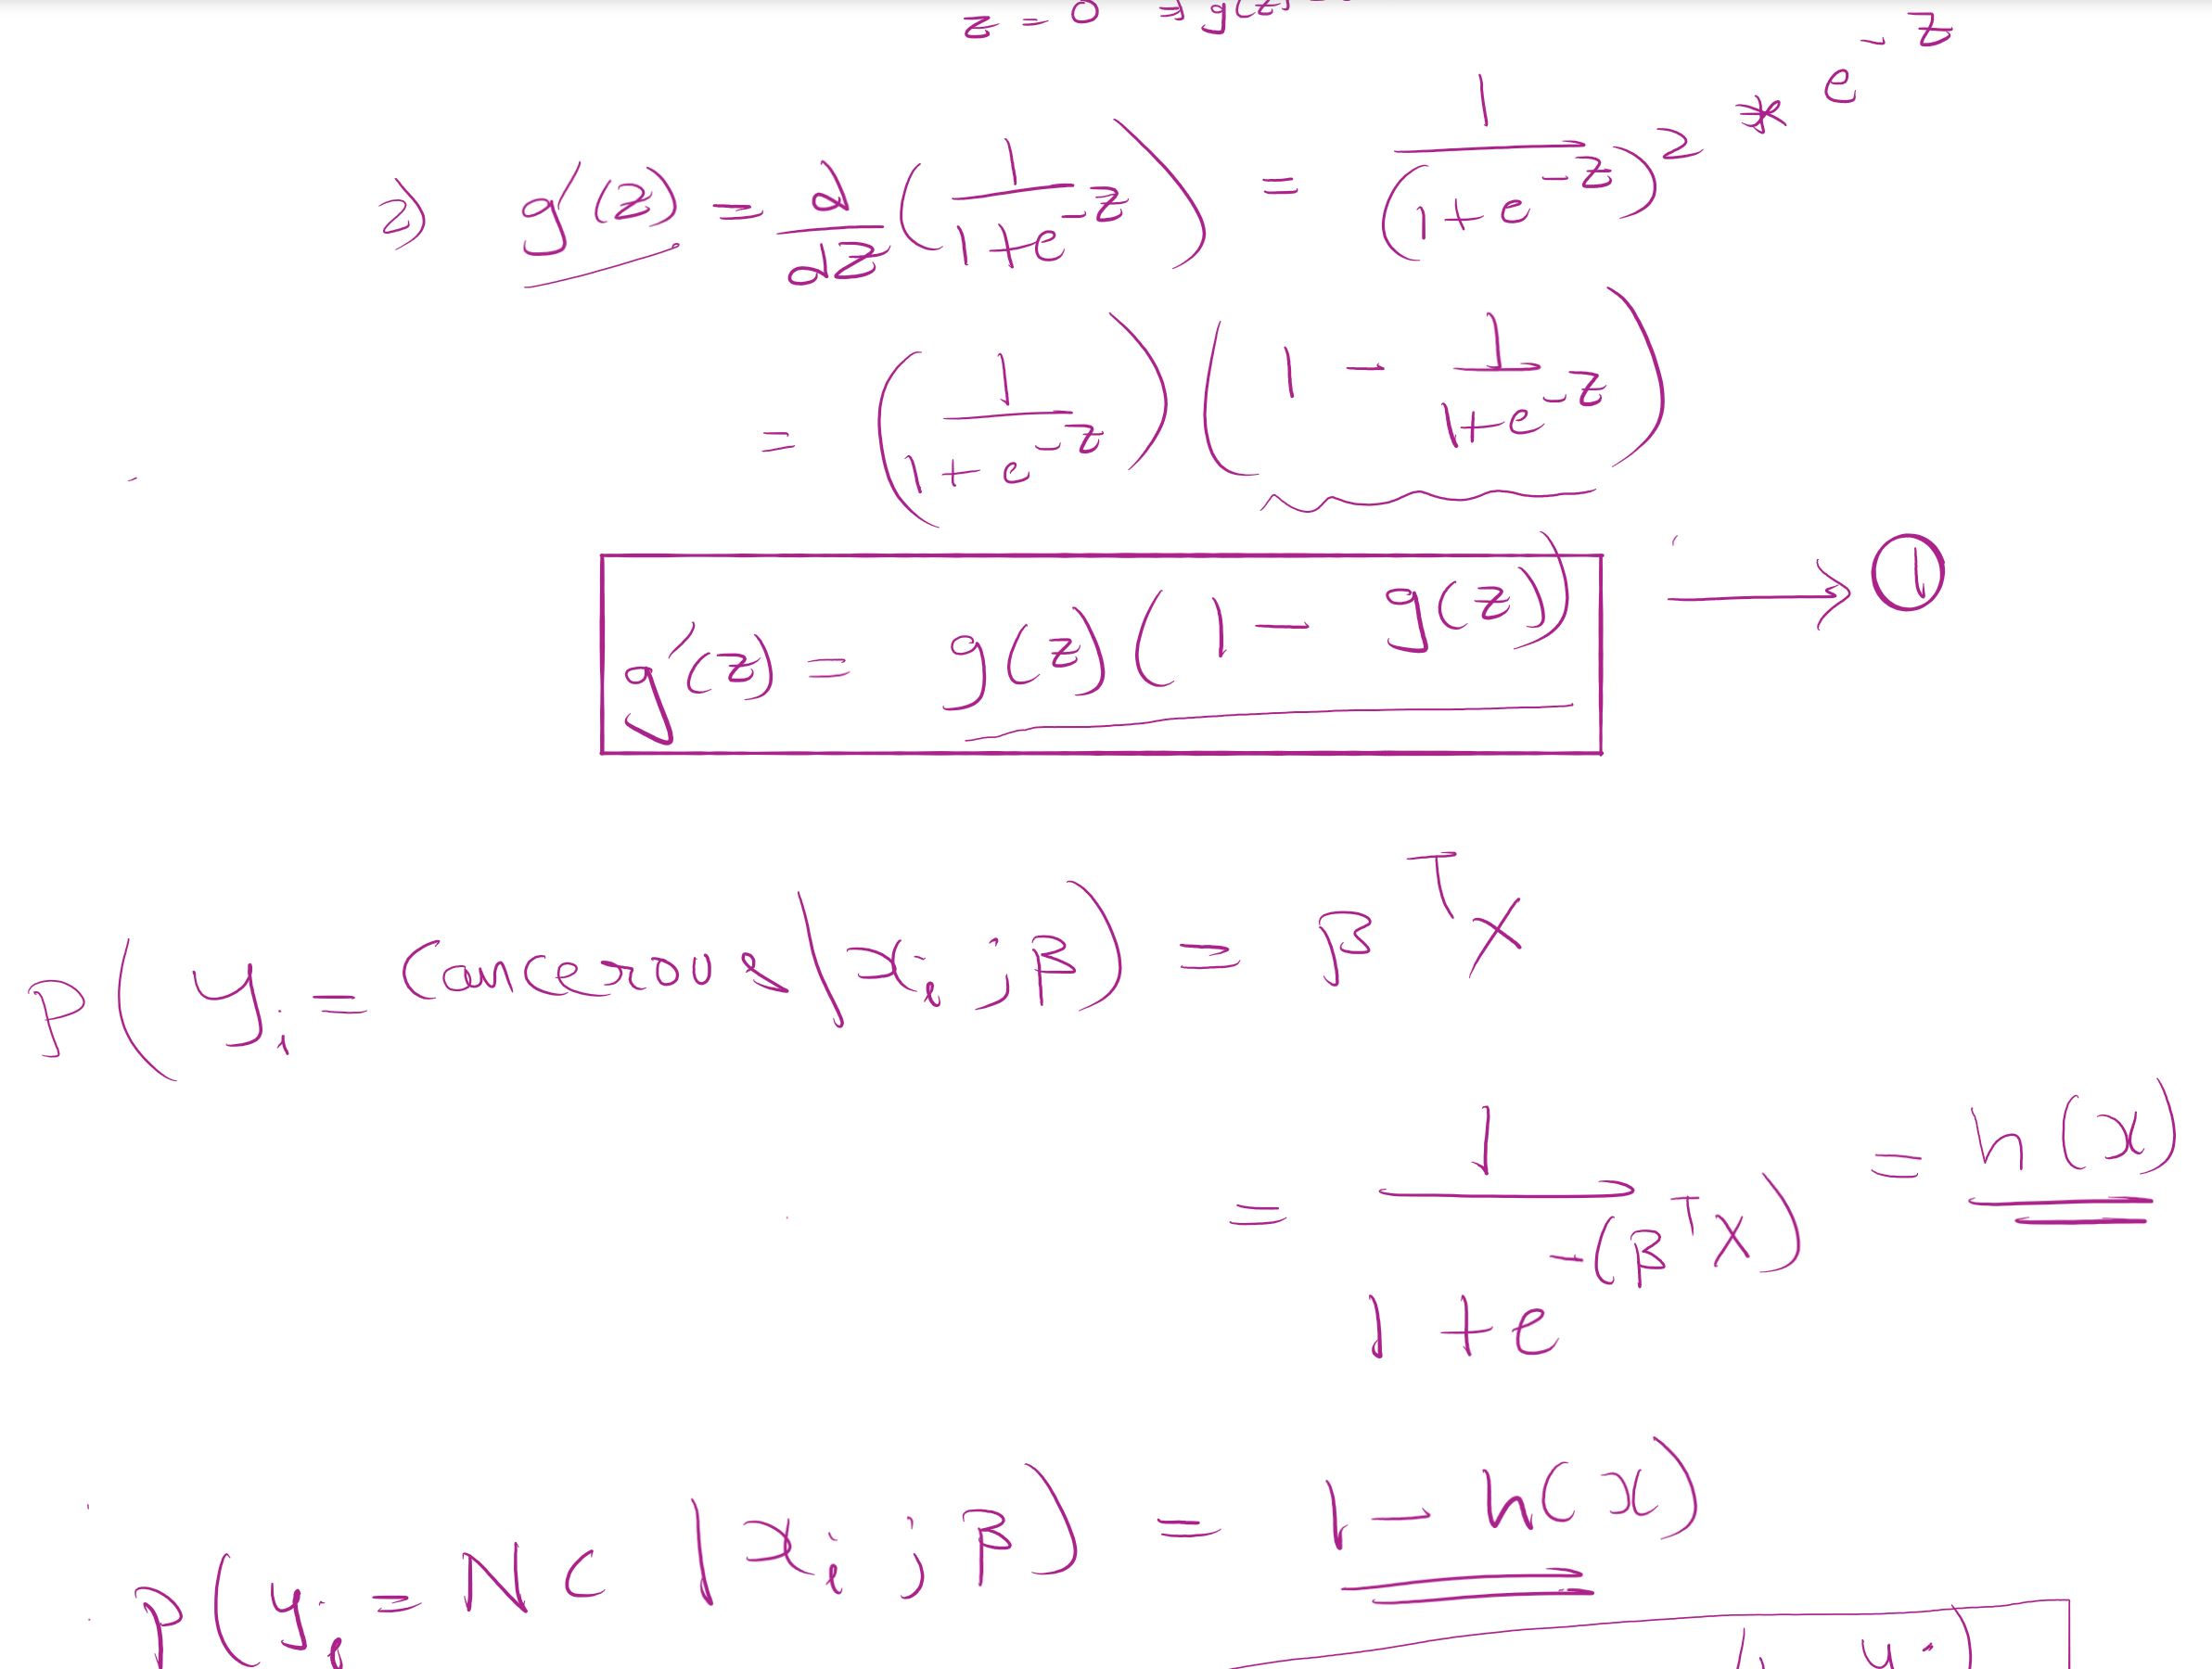 z = 0 ⇒ g(z)
2) g'(z) = d/dz (1/(1+e^{-z})) = 1/(1+e^{-z})^2 * e^{-z}
= (1/(1+e^{-z})) (1 - 1/(1+e^{-z}))
g'(z) = g(z)(1 - g(z)) → ①
P(y_i = Cancerous | x_i ; β) = β^T X
= 1/(1+e^{-(β^T X)}) = h(x)
P(y_i = NC | x_i ; β) = 1 - h(x)